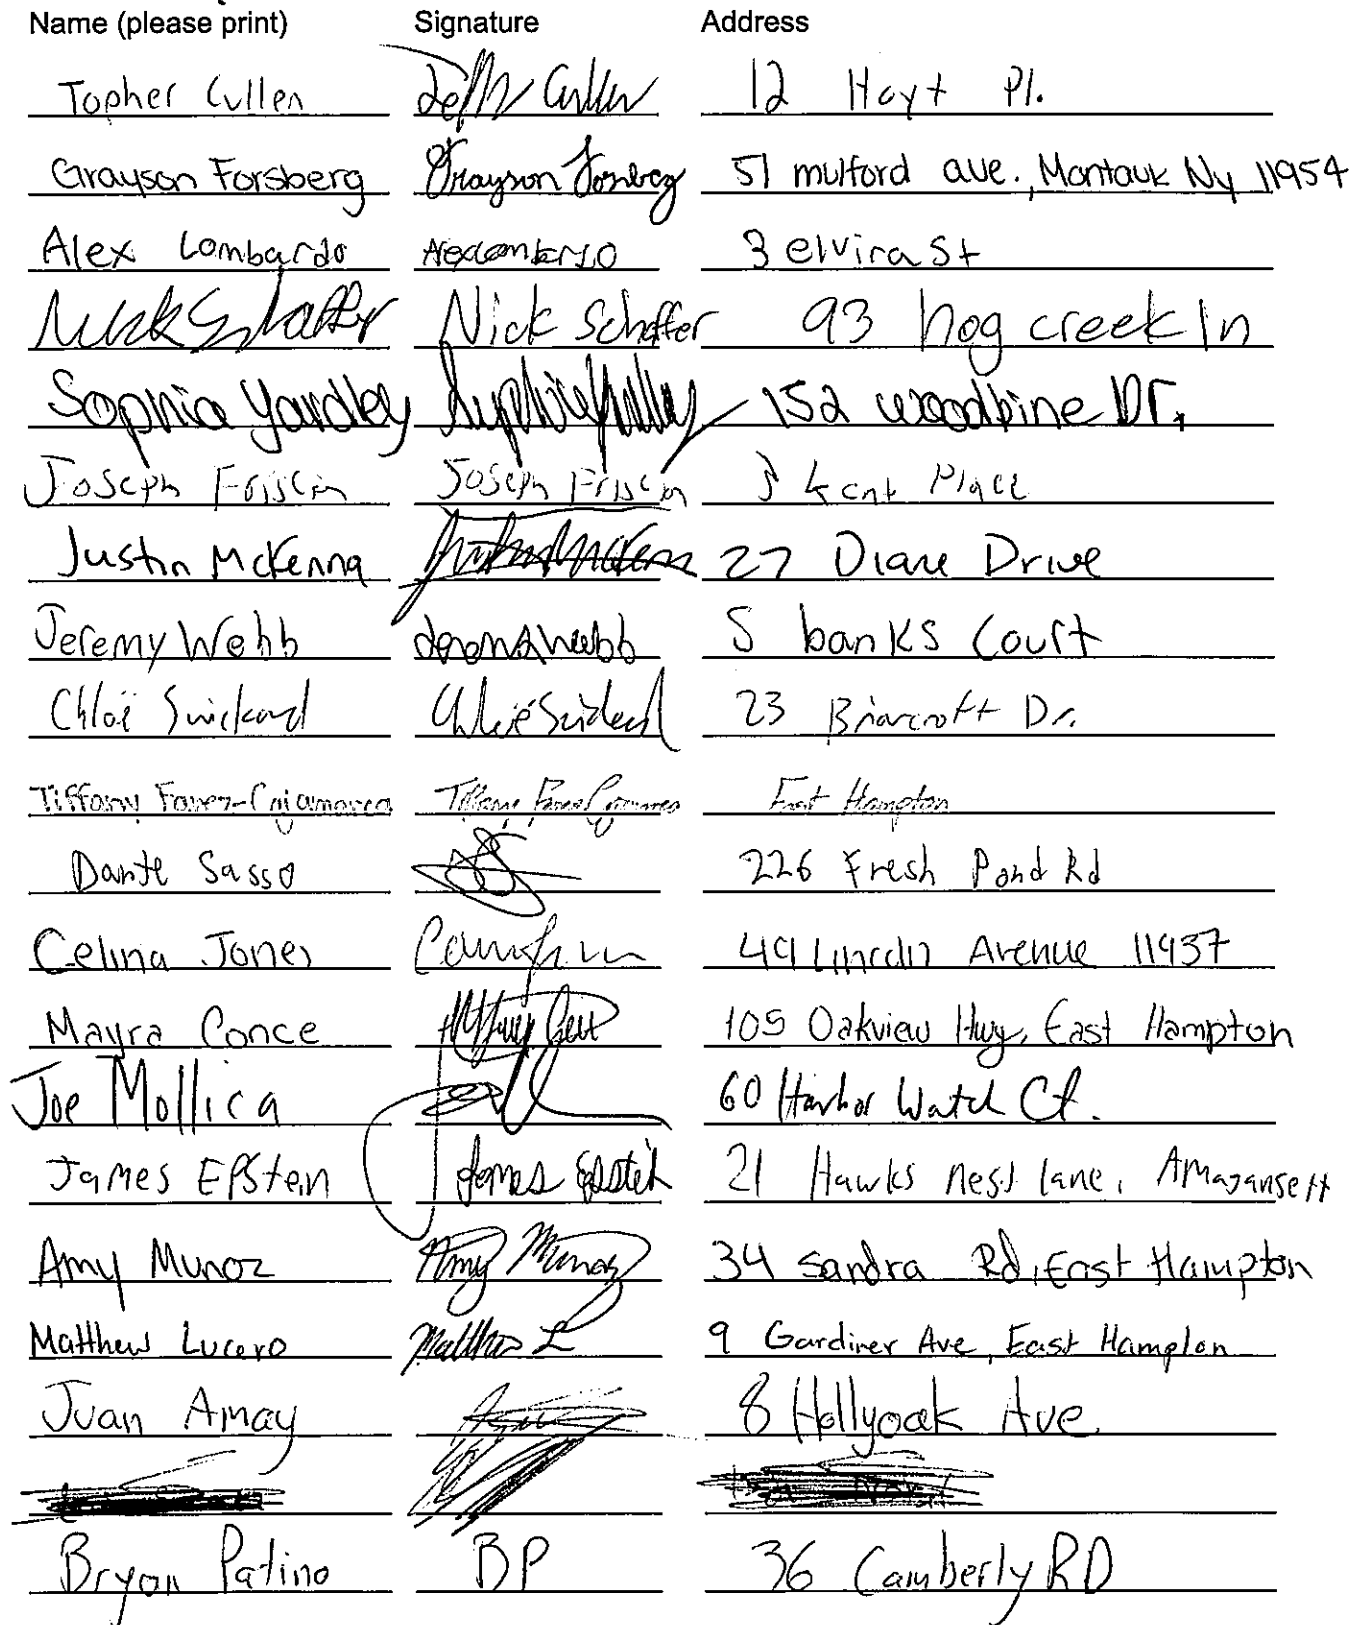 Name (please print) Signature Address
Topher Cullen Cullen 12 Hoyt Pl.
Grayson Forsberg Grayson Forsberg 51 mulford ave., Montauk Ny 11954
Alex Lombardo 3 elvira St
Nick Schaffer Nick Schaffer 93 hog creek ln
Sophia Yardley 152 woodbine Dr.
Joseph Friscin Joseph Friscin Kent Place
Justin McKenna Justin McKenna 27 Diane Drive
Jeremy Webb Jeremy Webb 5 banks Court
Chloë Swickard Chloë Swickard 23 Briarcroft Dr.
Tiffany Farez-Cajamarca Tiffany East Hampton
Dante Sasso DS 226 Fresh Pond Rd
Celina Jones 49 Lincoln Avenue 11937
Mayra Conce 105 Oakview Hwy, East Hampton
Joe Mollica 60 Harbor Watch Ct.
James Epstein James Epstein 21 Hawks nest lane, Amagansett
Amy Munoz Amy Munoz 34 Sandra Rd, East Hampton
Matthew Lucero Matthew L 9 Gardiner Ave, East Hampton
Juan Amay 8 Hollyoak Ave.
Bryan Patino BP 36 Camberly RD